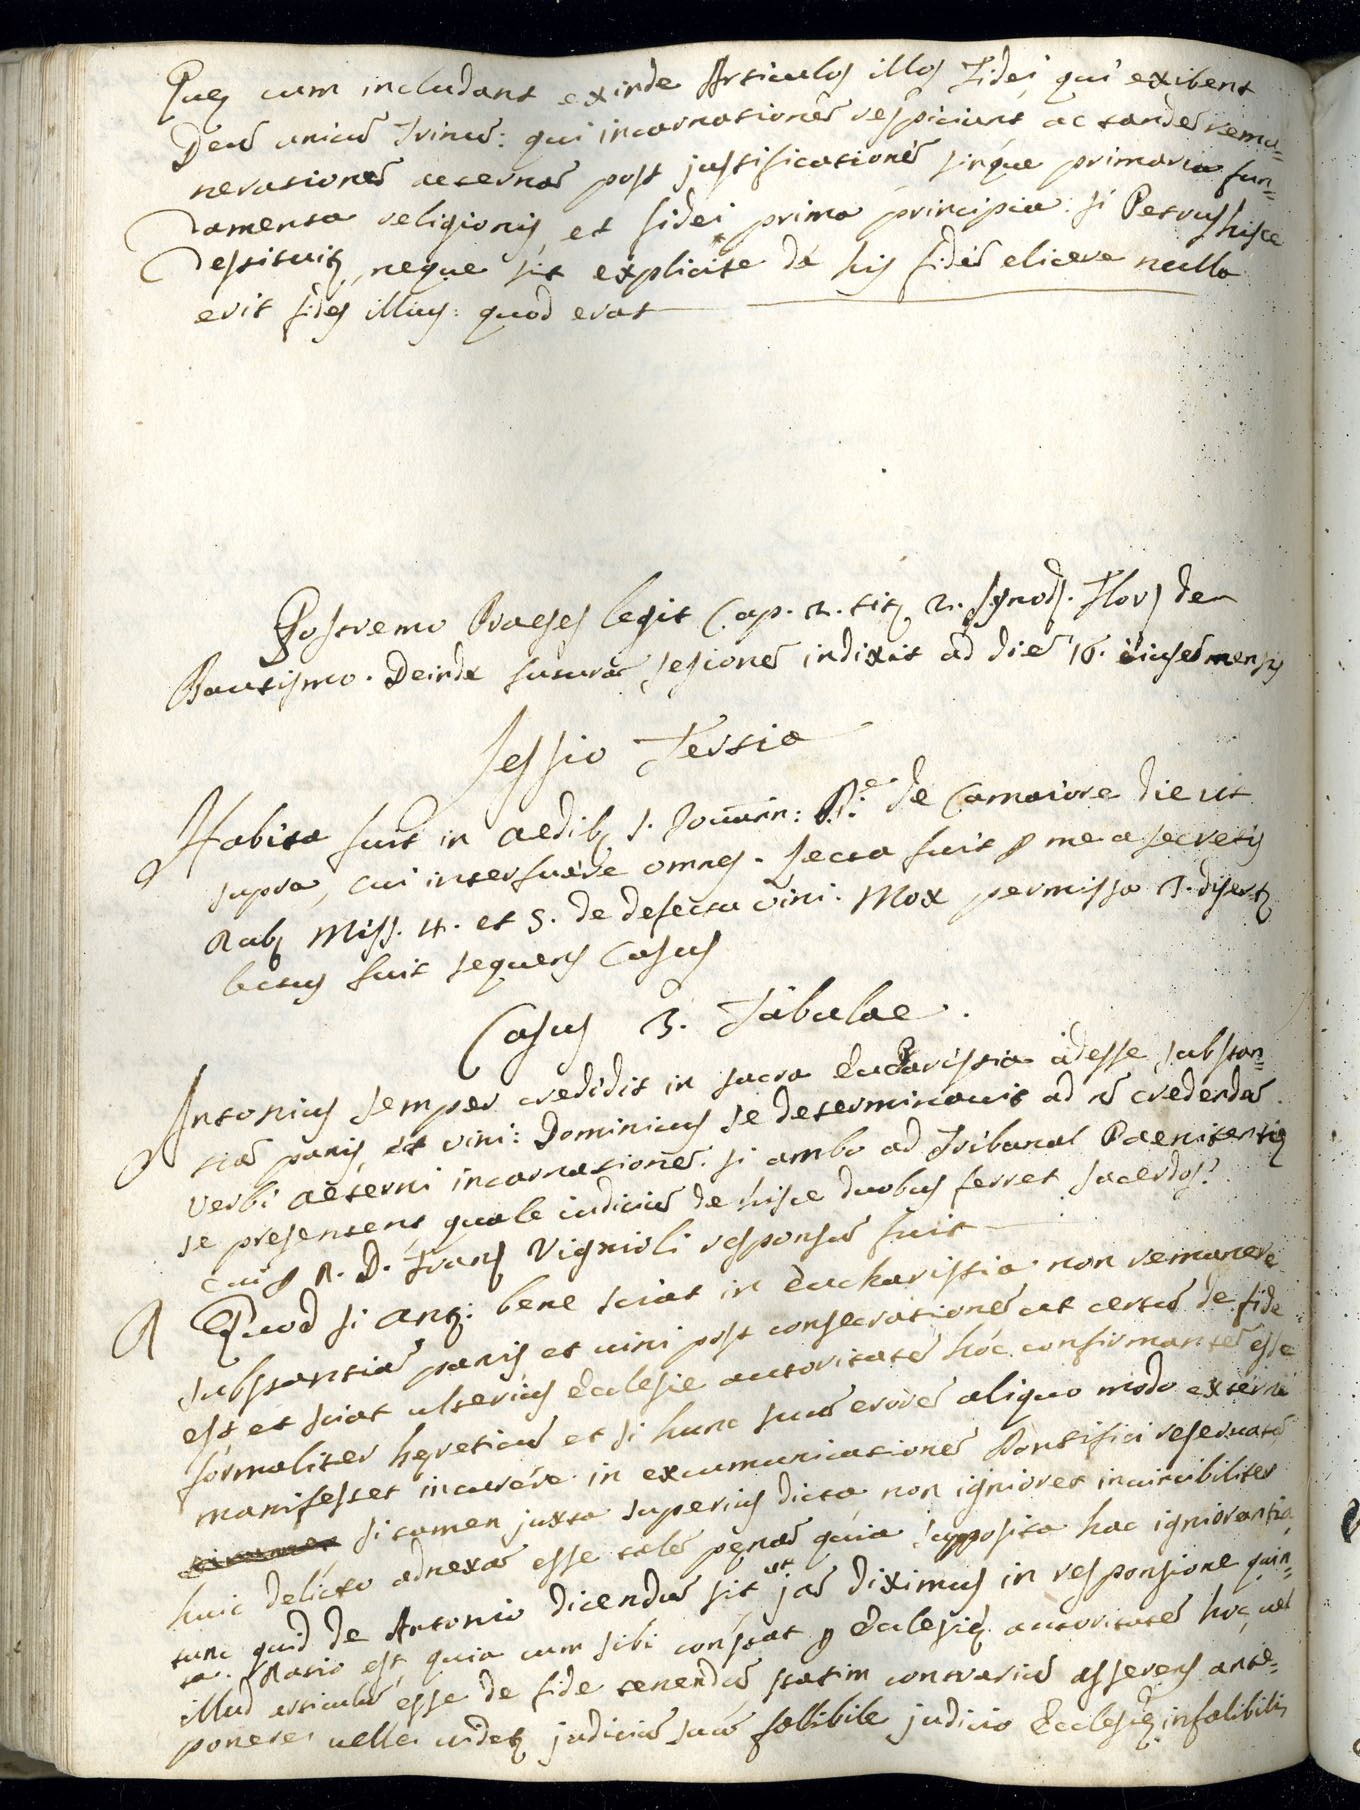 Quę cum includant exinde Articulos illos Fidei, qui exibent
Deũ unicũ Trinũ: qui incarnationẽ respiciunt ac tandẽ remu=
nerationẽ aeternã post justificationẽ sintque primaria fun=
damenta religionis, et fidei prima principia: si Petrus hisce
destituitʒ, neque sit explicite de his fidẽ elicere nulla
erit fides illius: quod erat
Postremo Praeses legit Cap. 2. titʒ 2. synodʒ. Flors de
Bautismo. Deinde futurã sesionẽ indixit ad diẽ 16. eiusdẽ mensis
Sessio Tertia
Habita fuit in aedibʒ S. Joũan: Bᵉ: de Camaiore die ut
supra, cui interfuére omnes. Lecta fuit ꝑ me a secretis
Rubʒ Miss. 4. et 5. de defectu vini. Mox permissa I. disertʒ
lectus fuit sequens Casus
Casus 3. Tabulae.
Antonius semper credidit in sacra Eucharistia adesse substan=
tiã panis, et vini: Dominicus se determinauit ad ñ credendã
Verbi aeterni incarnationẽ: si ambo ad Tribunal Paenitentię
se presentent, quale iudiciũ de hisce duobus ferret sacerdos?
cui ꝑ R. D. Frans Vignioli responsũ fuit
R Quod si antʒ: bene sciat in Eucharistia non remanere
substantiã panis et uini post consecrationẽ ut certũ de fide
est et sciat ulterius Ecclesie autoritatẽ hóc confirmantẽ esse
formaliter hęreticũ et si hunc suũ erorẽ aliquo modo externè
manifestet incurére in excumunicationẽ Pontifici reseruatã
si tamen juxta superius dicta non ignioret inuincibiliter
huic delicto adnexã esse talẽ pęnã quia supposita hac igniorantia
tunc quid de Antonio dicendũ sit ut jã diximus in responsione quin=
ta. Ratio est, quia cum sibi constat ꝑ Ecclesię autoritatẽ hoc, uel
illud articulũ esse de fide tenendũ statim contrariũ asserens ante=
ponere uelle uidetʒ judiciũ suũ fallibile judicio Ecclesię infalibilis